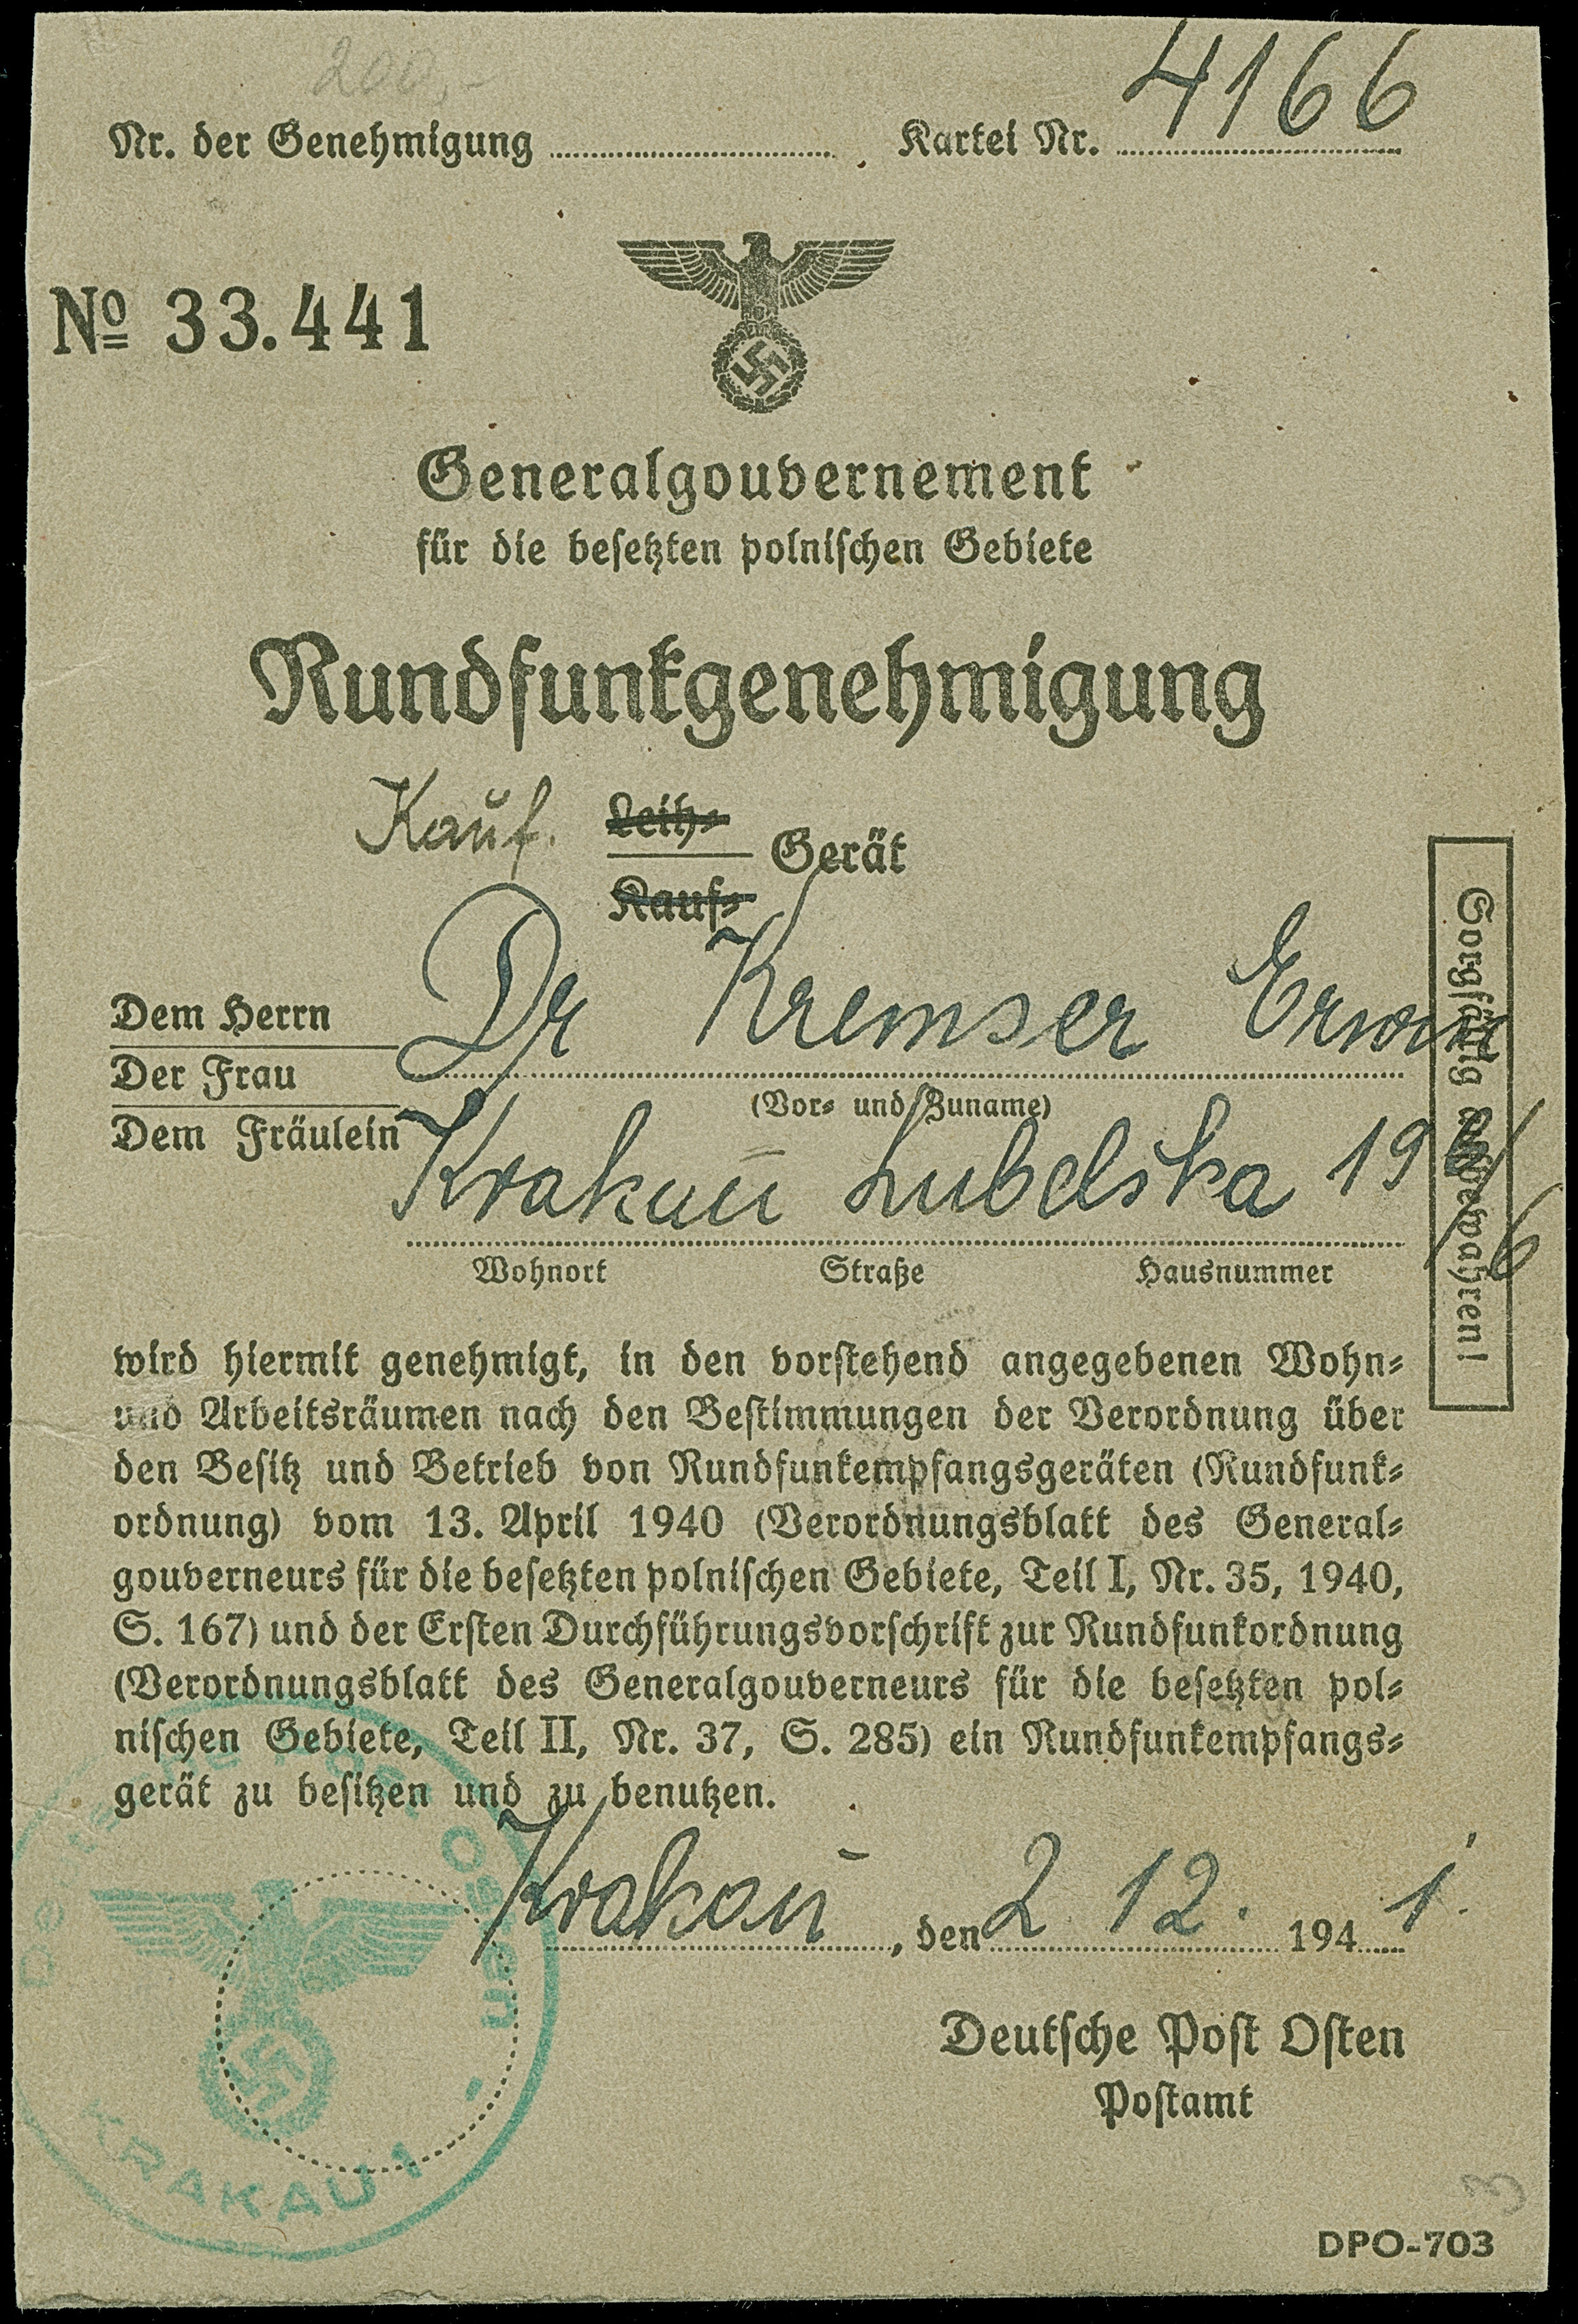 200,-
Nr. der Genehmigung Kartei Nr. 4166
№ 33.441
Generalgouvernement
für die besetzten polnischen Gebiete
Rundfunkgenehmigung
Kauf. Leih- Gerät
Kauf-
Dem Herrn
Der Frau
Dem Fräulein
Dr Kremser Erwin
(Vor- und Zuname)
Krakau Lubelska 19
Wohnort Straße Hausnummer
Sorgfältig aufbewahren!
wird hiermit genehmigt, in den vorstehend angegebenen Wohn-
und Arbeitsräumen nach den Bestimmungen der Verordnung über
den Besitz und Betrieb von Rundfunkempfangsgeräten (Rundfunk-
ordnung) vom 13. April 1940 (Verordnungsblatt des General-
gouverneurs für die besetzten polnischen Gebiete, Teil I, Nr. 35, 1940,
S. 167) und der Ersten Durchführungsvorschrift zur Rundfunkordnung
(Verordnungsblatt des Generalgouverneurs für die besetzten pol-
nischen Gebiete, Teil II, Nr. 37, S. 285) ein Rundfunkempfangs-
gerät zu besitzen und zu benutzen.
Krakau, den 2 12. 1941.
Deutsche Post Osten
Postamt
Deutsche Post Osten
KRAKAU 1
DPO-703